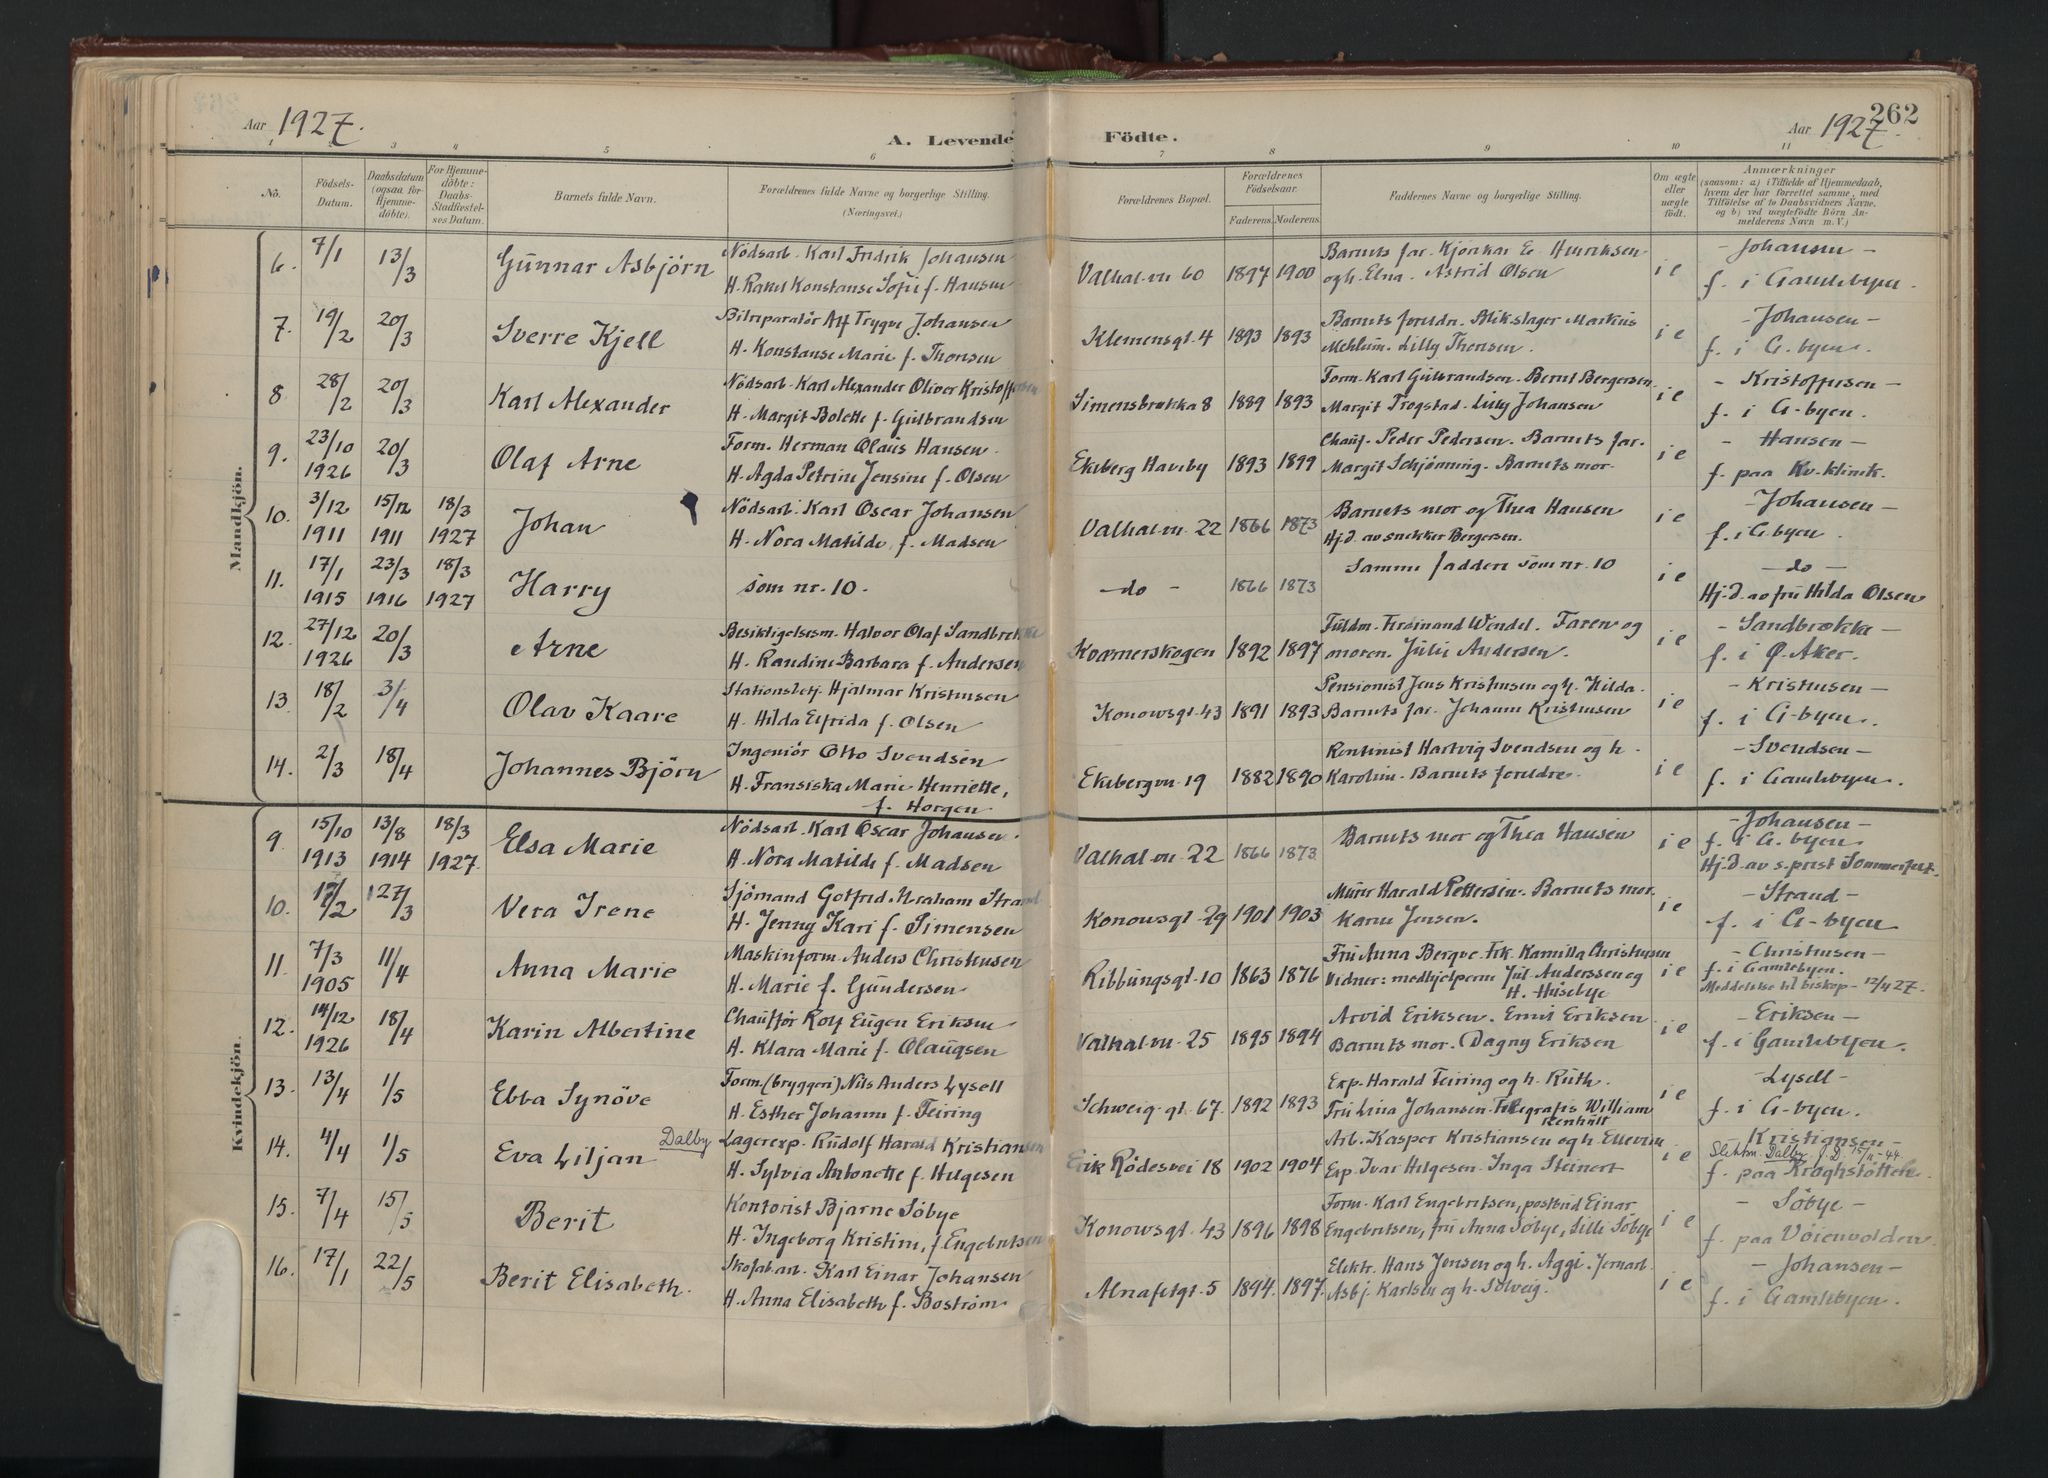 262
Aar 1927.
A. Levende Födte.
Aar 1927.
1 3 4 5 6 7 8 9 10 11
Nö.
Födsels-Datum.
Daabsdatum (ogsaa for Hjemmedöbte).
For Hjemmedöbte: Daabs-Stadfæstelses Datum.
Barnets fulde Navn.
Forældrenes fulde Navne og borgerlige Stilling. (Næringsvei.)
Forældrenes Bopæl.
Forældrenes Födselsaar.
Faderens. Moderens.
Faddernes Navne og borgerlige Stilling.
Om ægte eller uægte födt.
Anmærkninger
(saasom: a) i Tilfælde af Hjemmedaab, hvem der har forrettet samme, med Tilföielse af to Daabsvidners Navne, og b) ved uægtefödte Börn Anmelderens Navn m. V.)
Mandkjön.
6. 7/1 13/3 Gunnar Asbjörn Nödsarb. Karl Fredrik Johansen Valhal.vn 60 1897 1900 Barnets far. Kjörekar E. Henriksen i e - Johansen -
H. Rakel Konstanse Sofie f. Hansen og h. Elna. Astrid Olsen f. i Gamlebyen.
7. 19/2 20/3 Sverre Kjell Bilreparatör Alf Trygve Johansen Klemensgt. 4 1893 1893 Barnets foreldre. Blikslager Markus i e - Johansen -
H. Konstanse Marie f. Thorsen Mehlum. Lilly Thorsen. f. i G.byen.
8 28/2 20/3 Karl Alexander Nödsarb. Karl Alexander Oliver Kristoffersen Simensbrekka 8 1889 1893 Form. Karl Gulbrandsen. Bernt Bergersen. i e - Kristoffersen -
H. Margit Bolette f. Gulbrandsen Margit Trogstad. Lilly Johansen f. i G-byen.
9. 23/10 1926 20/3 Olaf Arne Form. Herman Olaus Hansen. Ekeberg Haveby 1893 1899 Chauf. Peder Pedersen. Barnets far. i e - Hansen -
H. Agda Petrine Jensine f. Olsen Margit Schjönning. Barnets mor. f. paa Kv. klinik.
10. 3/12 1911 15/12 1911 18/3 1927 Johan Nödsarb. Karl Oscar Johansen Valhal.vn. 22 1866 1873 Barnets mor og Thea Hansen i e - Johansen -
H. Nora Matilde f. Madsen Hj.d. av snekker Bergersen. f. i G.byen
11. 17/1 1915 23/3 1916 18/3 1927 Harry som nr. 10. - do - 1866 1873 Samme faddere som nr. 10 i e - do -
Hj.d. av fru Hilda Olsen
12. 27/12 1926 20/3 Arne Besiktigelsesm. Halvor Olaf Sandbrekke Kværnerskogen 1892 1897 Fuldm. Ferdinand Wendel. Faren og i e - Sandbrække -
H. Randine Barbara f. Andersen moren. Julie Andersen. f. i Ø. Aker.
13. 18/2 3/4 Olav Kaare Stationsbetj. Hjalmar Kristensen Konowsgt. 43 1891 1893 Pensionist Jens Kristensen og h. Hilda. i e - Kristensen -
H. Hilda Elfrida f. Olsen Barnets far. Johanne Kristensen f. i G-byen.
14. 2/3 18/4 Johannes Björn Ingeniör Otto Svendsen Ekebergvn 19 1882 1890 Rentenist Hartvig Svendsen og h. i e - Svendsen -
H. Fransiska Marie Henriette, Karoline. Barnets foreldre. f. i Gamlebyen.
f. Horgen
Kvindekjön.
9. 15/10 1913 13/8 1914 18/3 1927. Elsa Marie Nödsarb. Karl Oscar Johansen. Valhal.vn. 22 1866 1873 Barnets mor og Thea Hansen i e - Johansen -
H. Nora Matilde f. Madsen f. i G. byen
Hj.d. av s.prest Sommerfelt.
10. 17/2 27/3 Vera Irene Sjömand Gotfred Abraham Strand Konowsgt. 29 1901 1903 Murer Harald Pettersen. Barnets mor. i e - Strand -
H. Jenny Kari f. Simensen Karen Jensen. f. i G-byen
11. 7/3 1905 11/4 Anna Marie Maskinform. Anders Christensen Ribbungsgt. 10 1863 1876 Fru Anna Bergve. Frk. Kamilla Christensen i e - Christensen -
H. Marie f. Gundersen Vidner: medhjelperne Jul. Anderssen og f. i Gamlebyen.
H. Huseby Meddelelse til biskop - 12/4 27.
12. 14/12 1926 18/4 Karin Albertine Chaufför Rolf Eugen Eriksen Valhal.vn. 25 1895 1894 Arvid Eriksen. Ernst Eriksen i e - Eriksen -
H. Klara Marie f. Olaugsen Barnets mor. Dagny Eriksen f. i Gamlebyen.
13. 13/4 1/5 Ebba Synöve Form. (bryggeri) Nils Anders Lysell Schweig.gt. 67. 1892 1893 Exp. Harald Teiring og h. Ruth. i e - Lysell -
H. Esther Johanne f. Teiring Fru Lina Johansen. Telegrafis William f. i G-byen.
14. 4/4 1/5 Eva Liljan Dalby Lagerexp. Rudolf Harald Kristiansen Erik Rödesvei 18 1902 1904 Arb. Kasper Kristiansen og h. Ellevine i e Kristiansen -
H. Sylvia Antonette f. Helgesen Exp. Ivar Helgesen. Inga Steinert Slektsn. Dalby J.D. 15/11-44
f. paa Kroghstötten.
15. 7/4 15/5 Berit Kontorist Bjarne Söbye Konowsgt. 43 1896 1898 Form. Karl Engebretsen, postbud Einar i e - Söbye -
H. Ingeborg Kristine, f. Engebretsen Engebretsen, fru Anna Söbye, Lilli Söbye f. paa Vöienvolden.
16. 17/1 22/5 Berit Elisabeth. Skofab.arb. Karl Einar Johansen Alnafetgt. 5 1894. 1897. Elektr. Hans Jensen og h. Aggi. Jernarb. i e - Johansen -
H. Anna Elisabeth f. Boström Asbj. Karlsen og h. Solveig. f. i Gamlebyen.